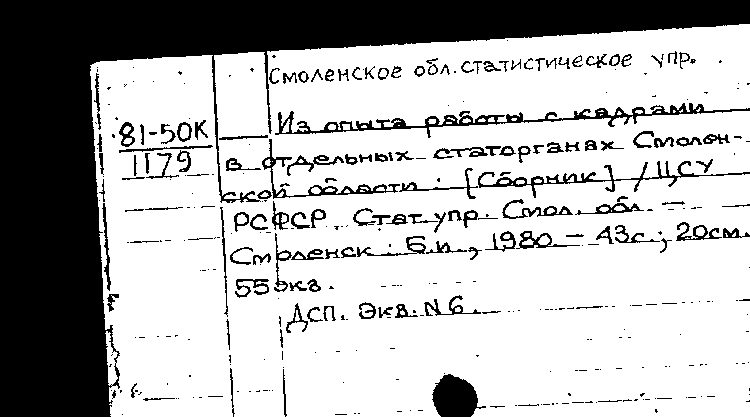 Смоленское обл. статистическое упр.
81-50К
1179
Из опыта работы с кадрами
в отдельных статорганах Смолен-
ской области : [Сборник] / ЦСУ
РСФСР. Стат. упр. Смол. обл. —
Смоленск : Б.и., 1980. — 43с.; 20см.
55 экз.
ДСП. Экз. N 6.